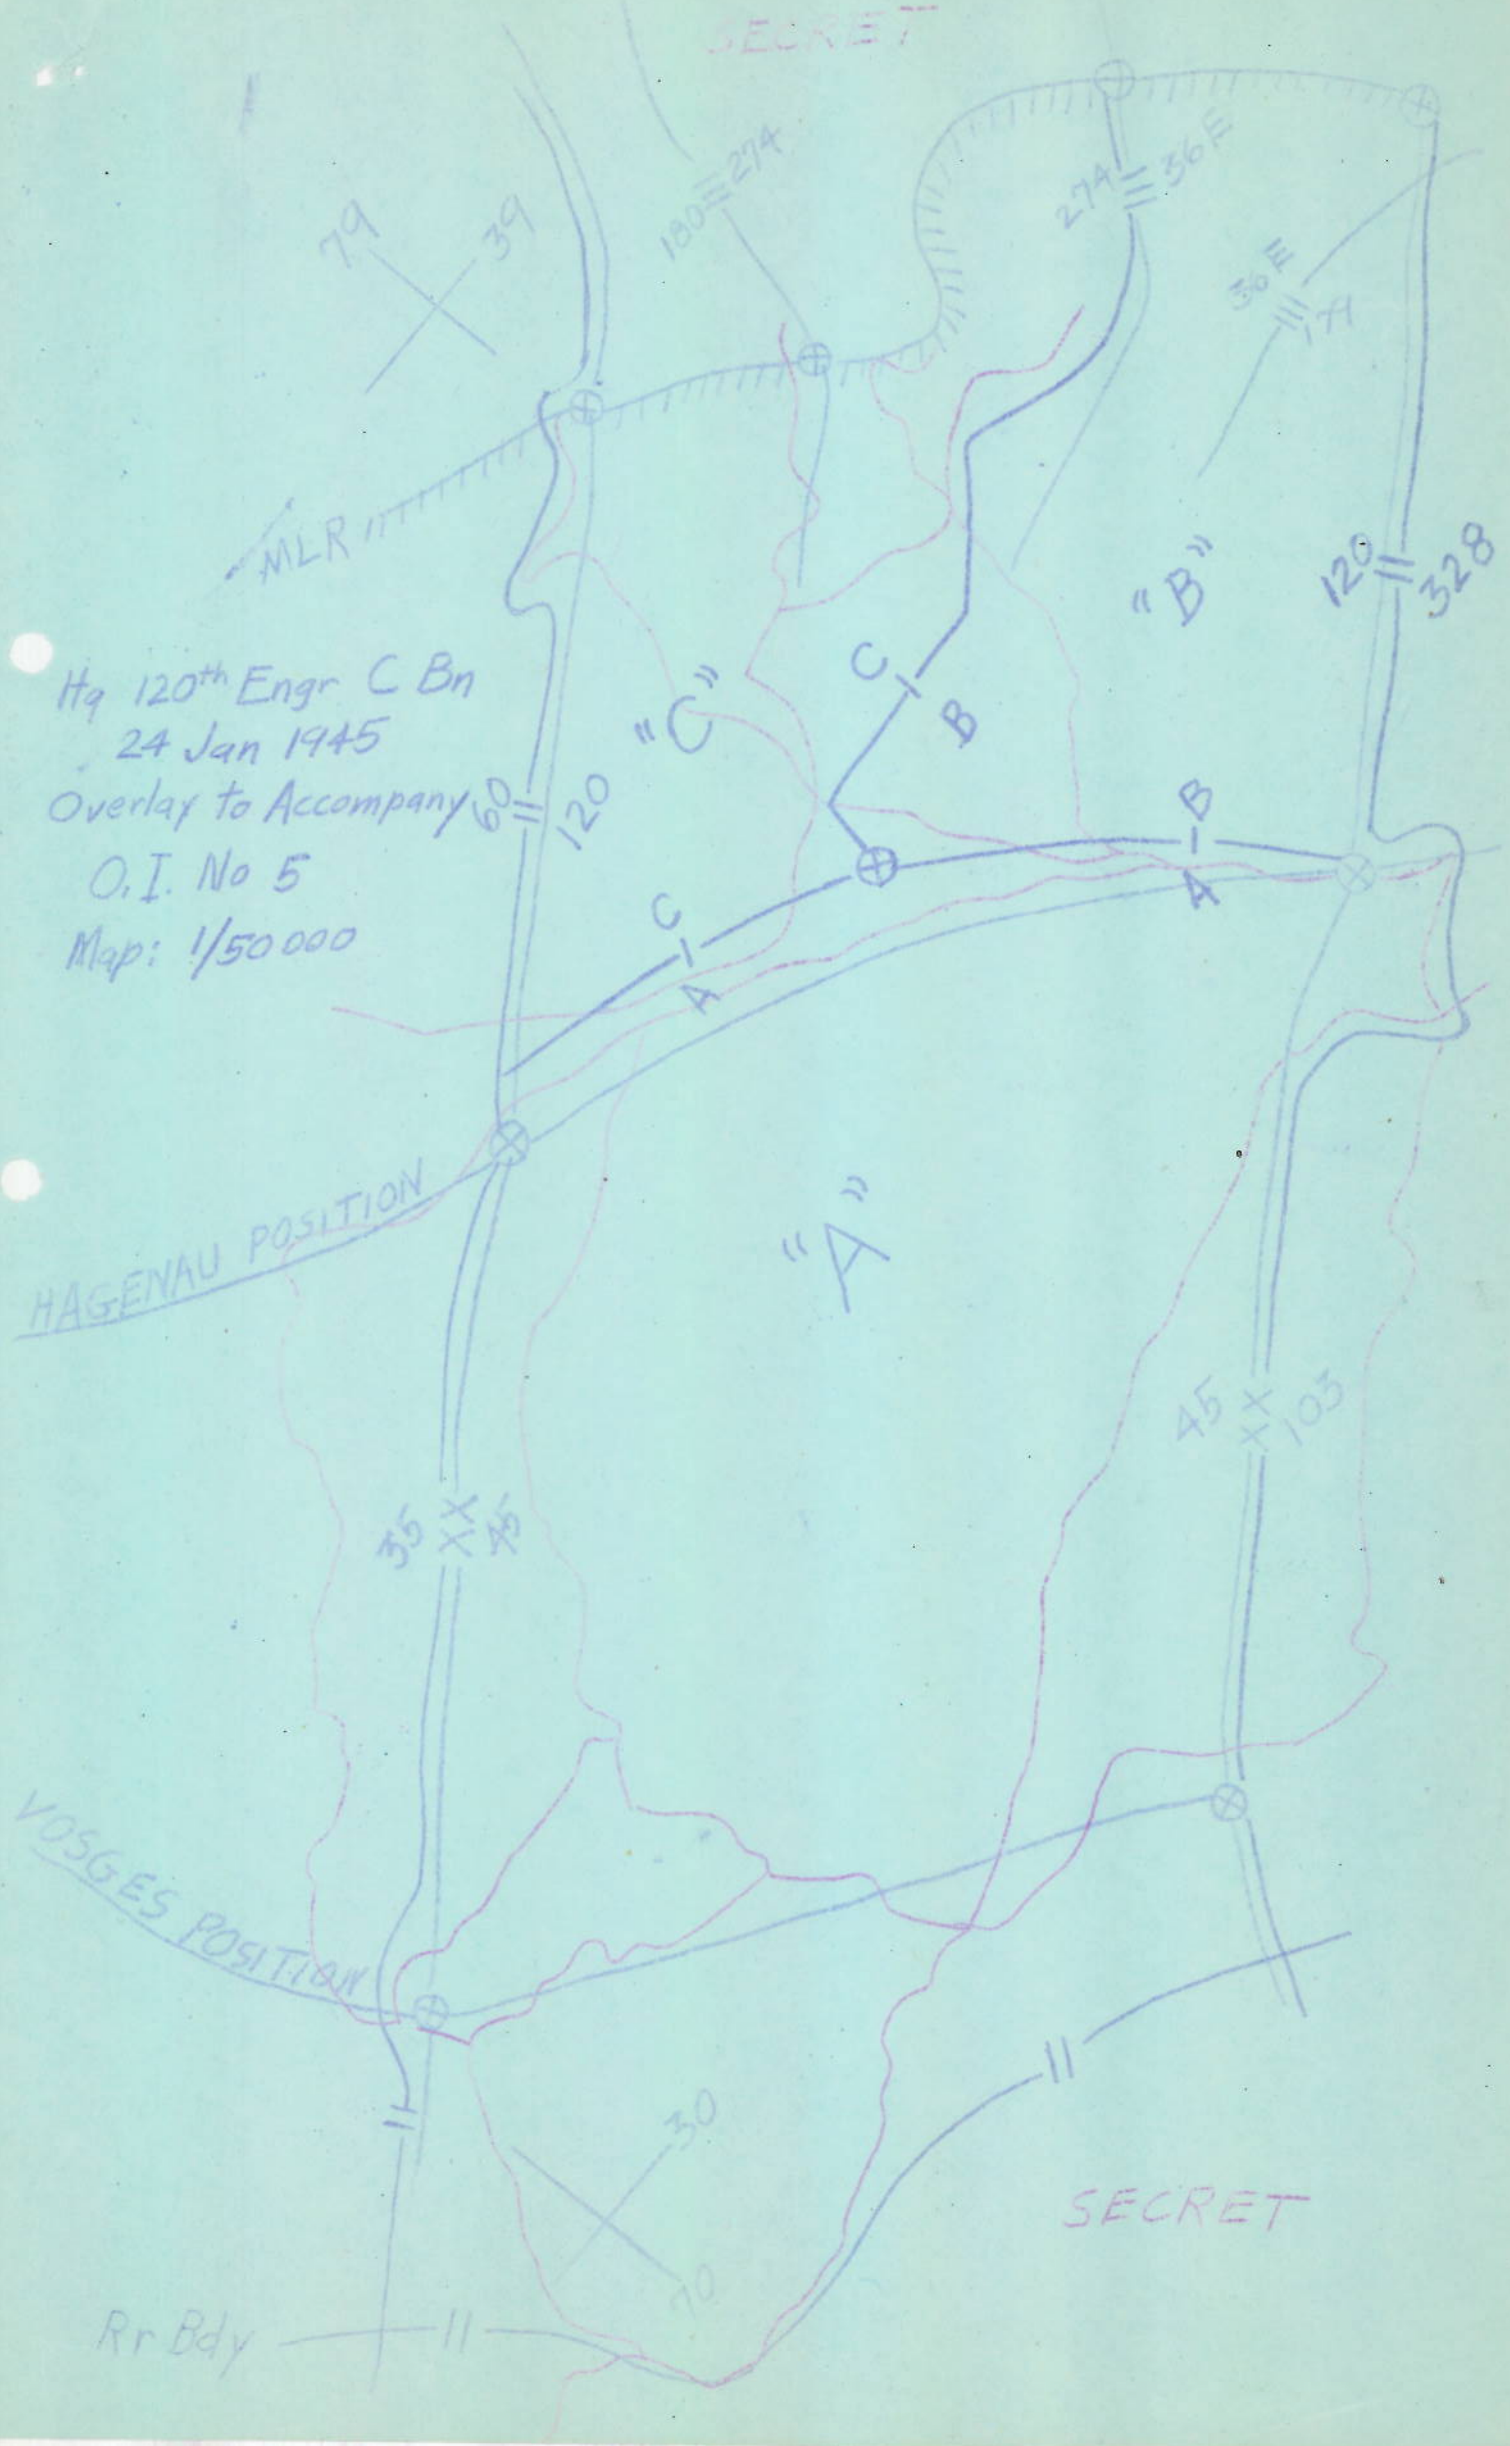 SECRET
180 274
274 36 E
79 39
36 E
179
MLR
120 328
"B"
Hq 120th Engr C Bn
24 Jan 1945
Overlay to Accompany
O.I. No 5
Map: 1/50000
"C"
C
B
60 120
B
A
C
A
HAGENAU POSITION
"A"
45 XX 103
35 XX 45
VOSGES POSITION
30
70
SECRET
Rr Bdy